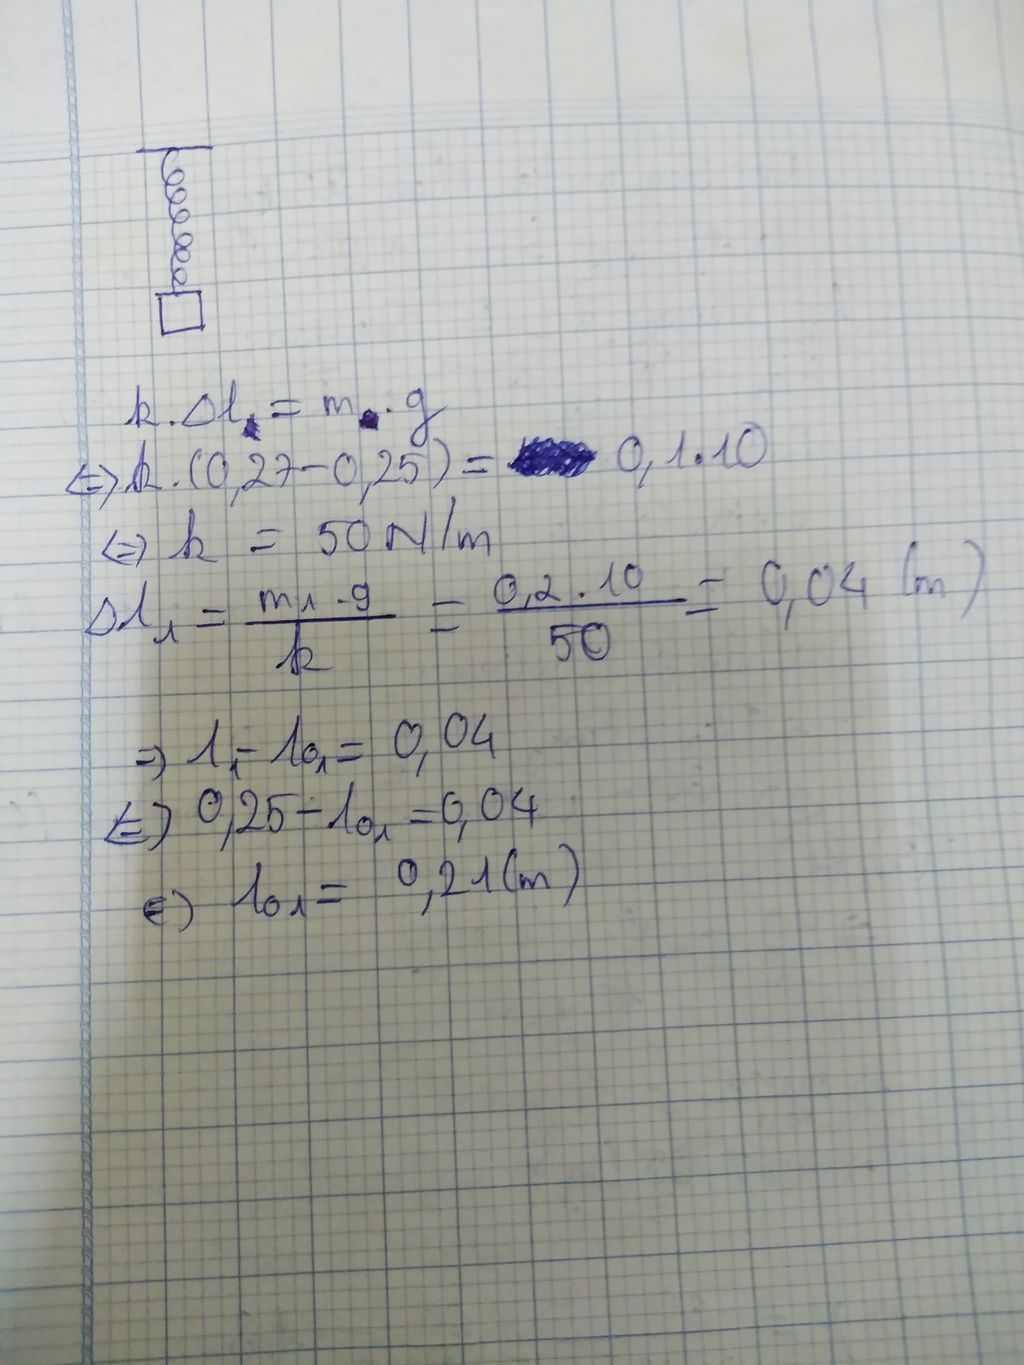 k.Δl = m.g
⇔ k.(0,27-0,25) = 0,1.10
⇔ k = 50 N/m
Δl₁ = m₁.g / k = 0,2.10 / 50 = 0,04 (m)
⇒ l₁ - l₀₁ = 0,04
⇔ 0,25 - l₀₁ = 0,04
⇔ l₀₁ = 0,21 (m)